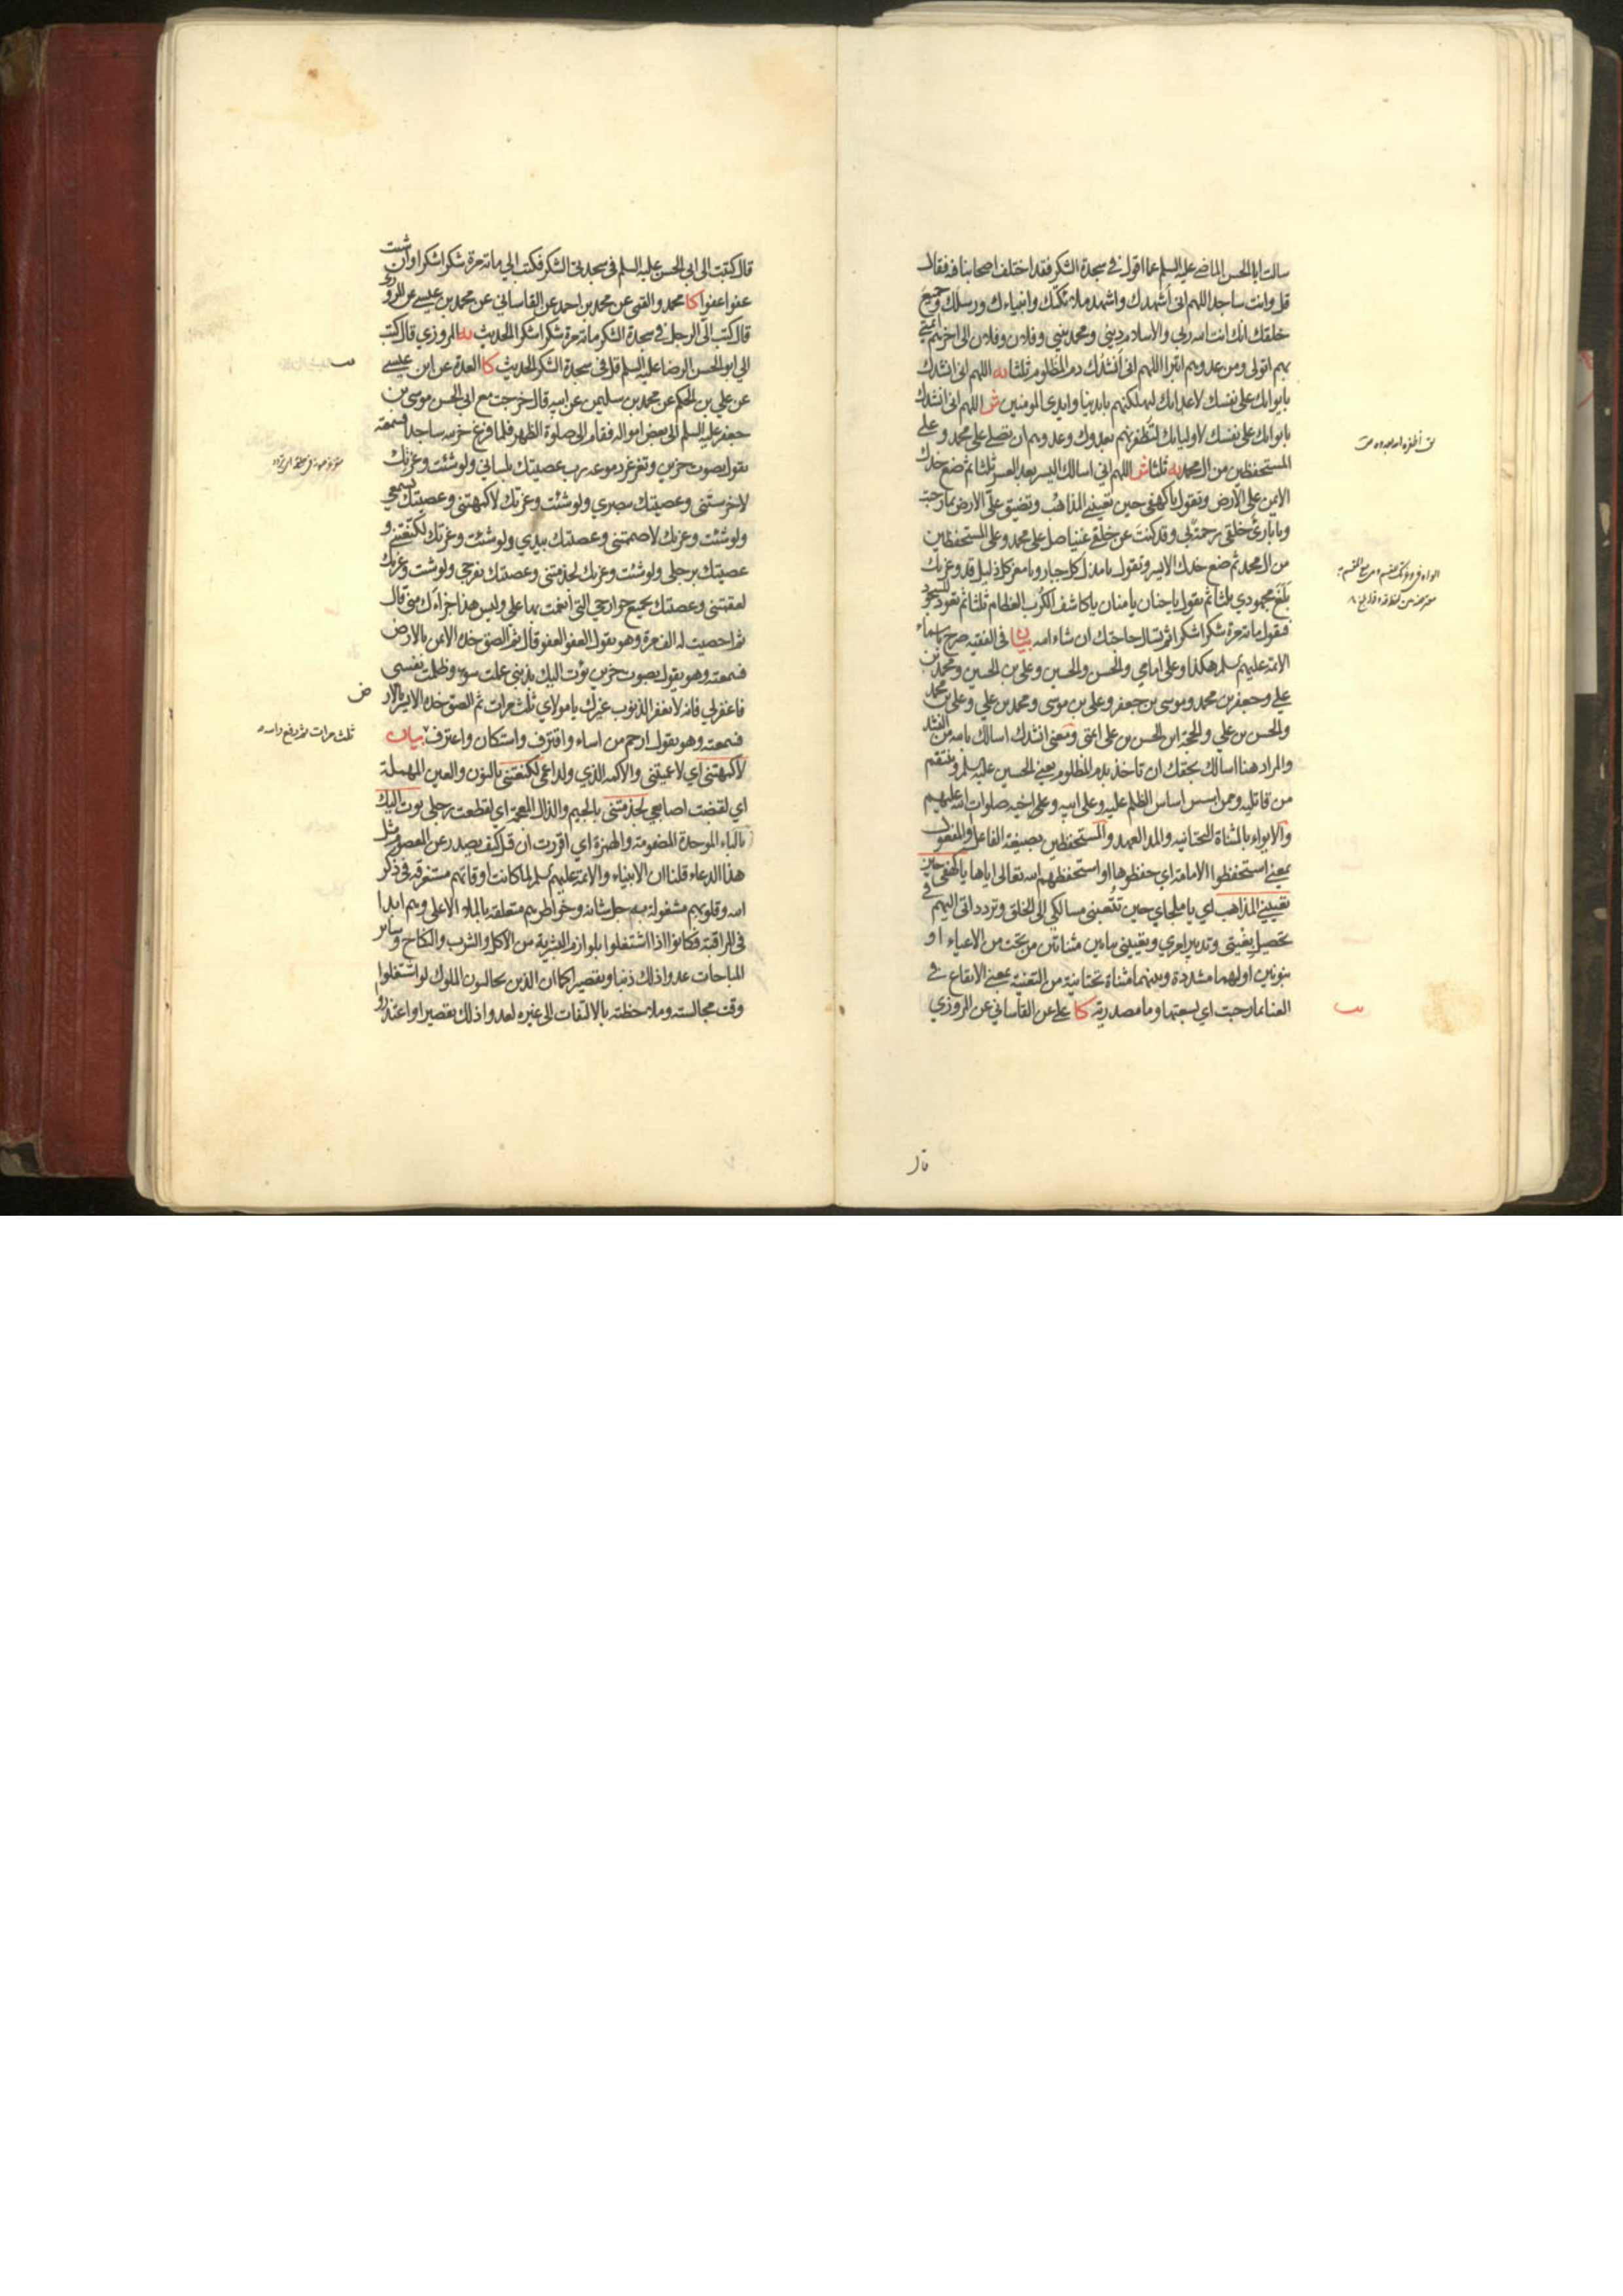 سالت ابا الحسن الماضي عليه السلم عما اقول في سجدة الشكر فقد اختلف اصحابنا فيه فقال
قل وانت ساجد اللهم اني اُشهدك واشهد ملائكتك وانبياءك ورسلك وجميع
خلقك انك انت الله ربي والاسلام ديني ومحمد نبيي وفلان وفلان الى اخرهم ائمتي
بهم اتولى ومن عدوهم اتبرا اللهم اني اَنشُدك دم المظلوم ثلثا يه اللهم اني انشدك
بايوائك على نفسك لاعدائك لتهلكنهم بايدينا وايدي المومنين ش اللهم اني انشدك
بايوائك على نفسك لاوليائك لتُظفرنهم بعدوك وعدوهم ان تصلي على محمد وعلى
المستحفظين من ال محمد يه ثلثا ش اللهم اني اسالك اليسر بعد العسر ثلثا ثم ضع خدك
الايمن على الارض وتقول ياكهفي حين تعييني المذاهب وتضيق عليّ الارض بما رحبت
ويا بارئ خلقي رحمة بي وقد كنت عن خلقي غنيا صل على محمد وعلى المستحفظين
من ال محمد ثم ضع خدك الايسر وتقول يا مذل كل جبار ويا معز كل ذليل قد وعزتك
بلغ مجهودي ثلثا ثم تقول يا حنان يا منان يا كاشف الكُرب العظام ثلثا ثم تعود للسجود
فتقول مائة مرة شكرا شكرا ثم تسال حاجتك ان شاء الله بيان في الفقيه صرح باسماء
الائمة عليهم سلم هكذا وعلى امامي والحسن والحسين وعلى بن الحسين ومحمد بن
علي وجعفر بن محمد وموسى بن جعفر وعلي بن موسى ومحمد بن علي وعلي بن محمد
والحسن بن علي والحجة ابن الحسن بن علي ائمتي ومعنى انشدك اسالك بالله من النشد
والمراد هنا اسالك بحقك ان تاخذ بدم المظلوم يعني الحسين عليه سلم وتنتقم
من قاتليه ومن اسس اساس الظلم عليه وعلى ابيه وعلى اخيه صلوات الله عليهم
والايواء بالمثناة التحتانيه والمد العهد والمستحفظين بصيغة الفاعل او المفعول
بمعنى استحفظوا الامامة اي حفظوها او استحفظهم الله تعالى اياها ياكهفي حين
تعييني المذاهب اي يا ملجاي حين تُتعبني مسالكي الى الخلق وترددا تي اليهم في
تحصيل بغيتي وتدبير امري وتعييني بيائين مثناتين من تحت من الاعياء او
بنونين اولهما مشددة وبينهما مثناة تحتانية من التعنية بمعنى الايقاع في
العنا بما رحبت اي بسعتها وما مصدرية كا علي عن القاساني عن المروزي
قال
قال كتبت الى ابي الحسن عليه السلم في سجدتي الشكر فكتب الي مائة مرة شكرا شكرا وان شئت
عفوا عفوا كا محمد والقمي عن محمد بن احمد عن القاساني عن محمد بن عيسى عن المروزي
قال كتب الي الرجل في سجدة الشكر مائة مرة شكرا شكرا الحديث يه المروزي قال كتب
الي ابو الحسن الرضا عليه السلم قل في سجدة الشكر الحديث كا العدة عن ابن عيسى
عن علي بن الحكم عن محمد بن سليمن عن ابيه قال خرجت مع ابي الحسن موسى بن
جعفر عليه السلم الى بعض امواله فقام الى صلوة الظهر فلما فرغ خر لله ساجدا فسمعته
يقول بصوت حزين وتغرغر دموعه رب عصيتك بلساني ولو شئت وعزتك
لاخرستني وعصيتك ببصري ولو شئت وعزتك لاكمهتني وعصيتك بسمعي
ولو شئت وعزتك لاصممتني وعصيتك بيدي ولو شئت وعزتك لكنّعتني و
عصيتك برجلي ولو شئت وعزتك لجذمتني وعصيتك بفرجي ولو شئت وعزتك
لعقمتني وعصيتك بجميع جوارحي التي انعمت بها علي وليس هذا جزاءك مني قال
ثم احصيت له الف مرة وهو يقول العفو العفو قال ثم الصق خده الايمن بالارض
فسمعته وهو يقول بصوت حزين بؤت اليك بذنبي عملت سوء وظلمت نفسي
فاغفر لي فانه لا يغفر الذنوب غيرك يا مولاي ثلث مرات ثم الصق خده الايسر بالارض
فسمعته وهو يقول ارحم من اساء واقترف واستكان واعترف بيان
ثلث مرات ثم رفع راسه
لاكمهتني اي لاعميتني والاكمه الذي ولد اعمى لكنعتني بالنون والعين المهملة
اي لقبضت اصابعي لجذمتني بالجيم والذال المعجمة اي لقطعت رجلي بوت اليك
بالباء الموحدة المضمومة والهمزة اي اقررت ان قيل كيف يصدر عن المعصوم مثل
هذا الدعاء قلنا ان الانبياء والائمة عليهم سلم لما كانت اوقاتهم مستغرقة في ذكر
الله وقلوبهم مشغولة به جل شانه وخواطرهم متعلقة بالملاء الاعلى وهم ابدا
في المراقبة فكانوا اذا اشتغلوا بلوازم البشرية من الاكل والشرب والنكاح وساير
المباحات عدوا ذلك ذنبا وتقصيرا كما ان الذين يجالسون الملوك لو اشتغلوا
وقت مجالسته وملاحظته بالالتفات الى غيره لعدوا ذلك تقصيرا واعتذروا